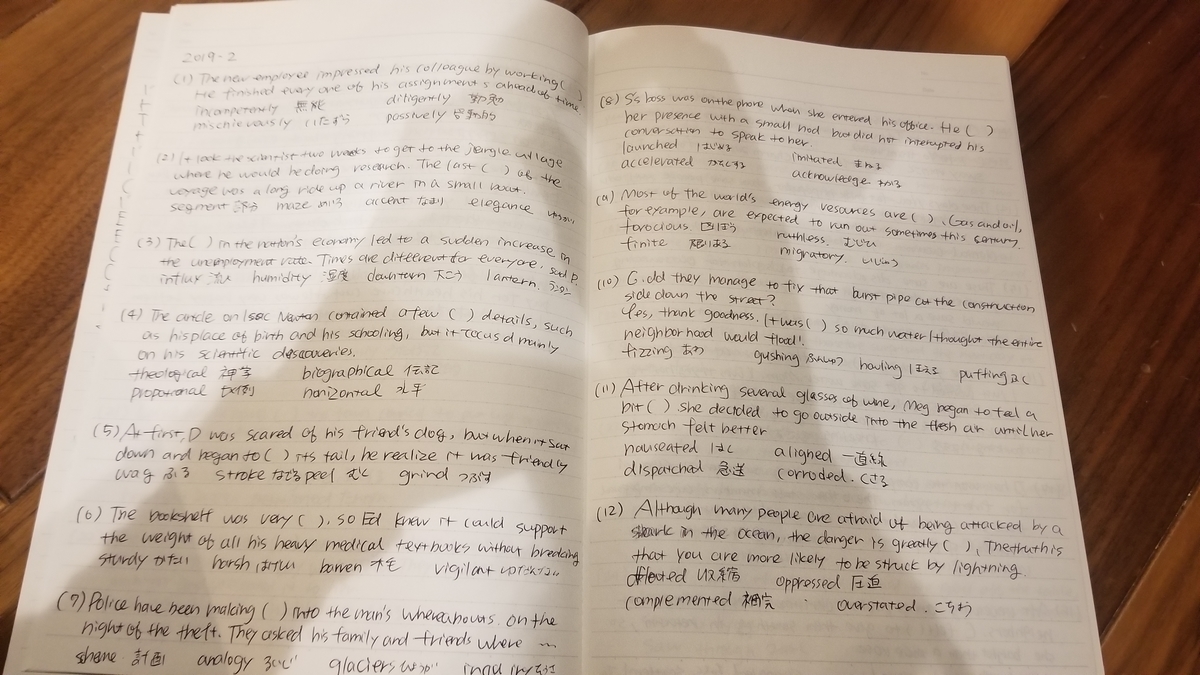 2019-2
(1) The new employee impressed his colleague by working( )
He finished every one of his assignments ahead of time.
incompetently 無能 diligently 勤勉
mischievously いたずら passively 受動的
(2) It took the scientist two weeks to get to the jungle village
where he would be doing research. The last ( ) of the
voyage was a long ride up a river in a small boat.
segment 部分 maze めいろ accent なまり elegance
(3) The ( ) in the nation's economy led to a sudden increase in
the unemployment rate. Times are different for everyone, said P.
influx 流入 humidity 湿度 downturn 下こう lantern. ランタン
(4) The article on Isac Newton contained a few ( ) details, such
as his place of birth and his schooling, but it focusd mainly
on his scientific descoveries.
theological 神学 biographical 伝記
proportional 比例 horizontal 水平
(5) At first, D was scared of his friend's dog, but when it sat
down and began to ( ) its tail, he realize it was friendly
wag ふる stroke なでる peel むく grind つぶす
(6) The bookshelf was very ( ), so Ed knew it could support
the weight of all his heavy medical textbooks without breaking
sturdy かたい harsh きびしい barren 不毛 vigilant
(7) Police have been making ( ) into the man's whereabouts on the
night of the theft. They asked his family and friends where 〜
sheme 計画 analogy るいじ glaciers
(8) S's boss was on the phone when she entered his office. He ( )
her presence with a small nod but did not interupted his
conversation to speak to her.
launched はじめる imitated まねる
accelerated かそくする acknowledge みとめる
(9) Most of the world's energy resources are ( ). Gas and oil,
for example, are expected to run out sometimes this century.
ferocious 凶ぼう ruthless. むじひ
finite 限りある migratory. いじゅう
(10) G. dd they manage to fix that burst pipe at the construction
side down the street?
Yes, thank goodness. It was ( ) so much water I thought the entire
neighborhood would flood!
fizzing あわ gushing ふんしゅつ howling ほえる putting おく
(11) After drinking several glasses of wine, Meg began to feel a
bit ( ). she decided to go outside into the flesh air until her
stomach felt better
nauseated はく aligned 一直線
dispatched 急送 corroded. くさる
(12) Although many people are afraid of being attacked by a
shark in the ocean, the danger is greatly ( ), The truth is
that you are more likely to be struck by lightning.
oppressed 圧迫
complemented 補完 overstated. こちょう